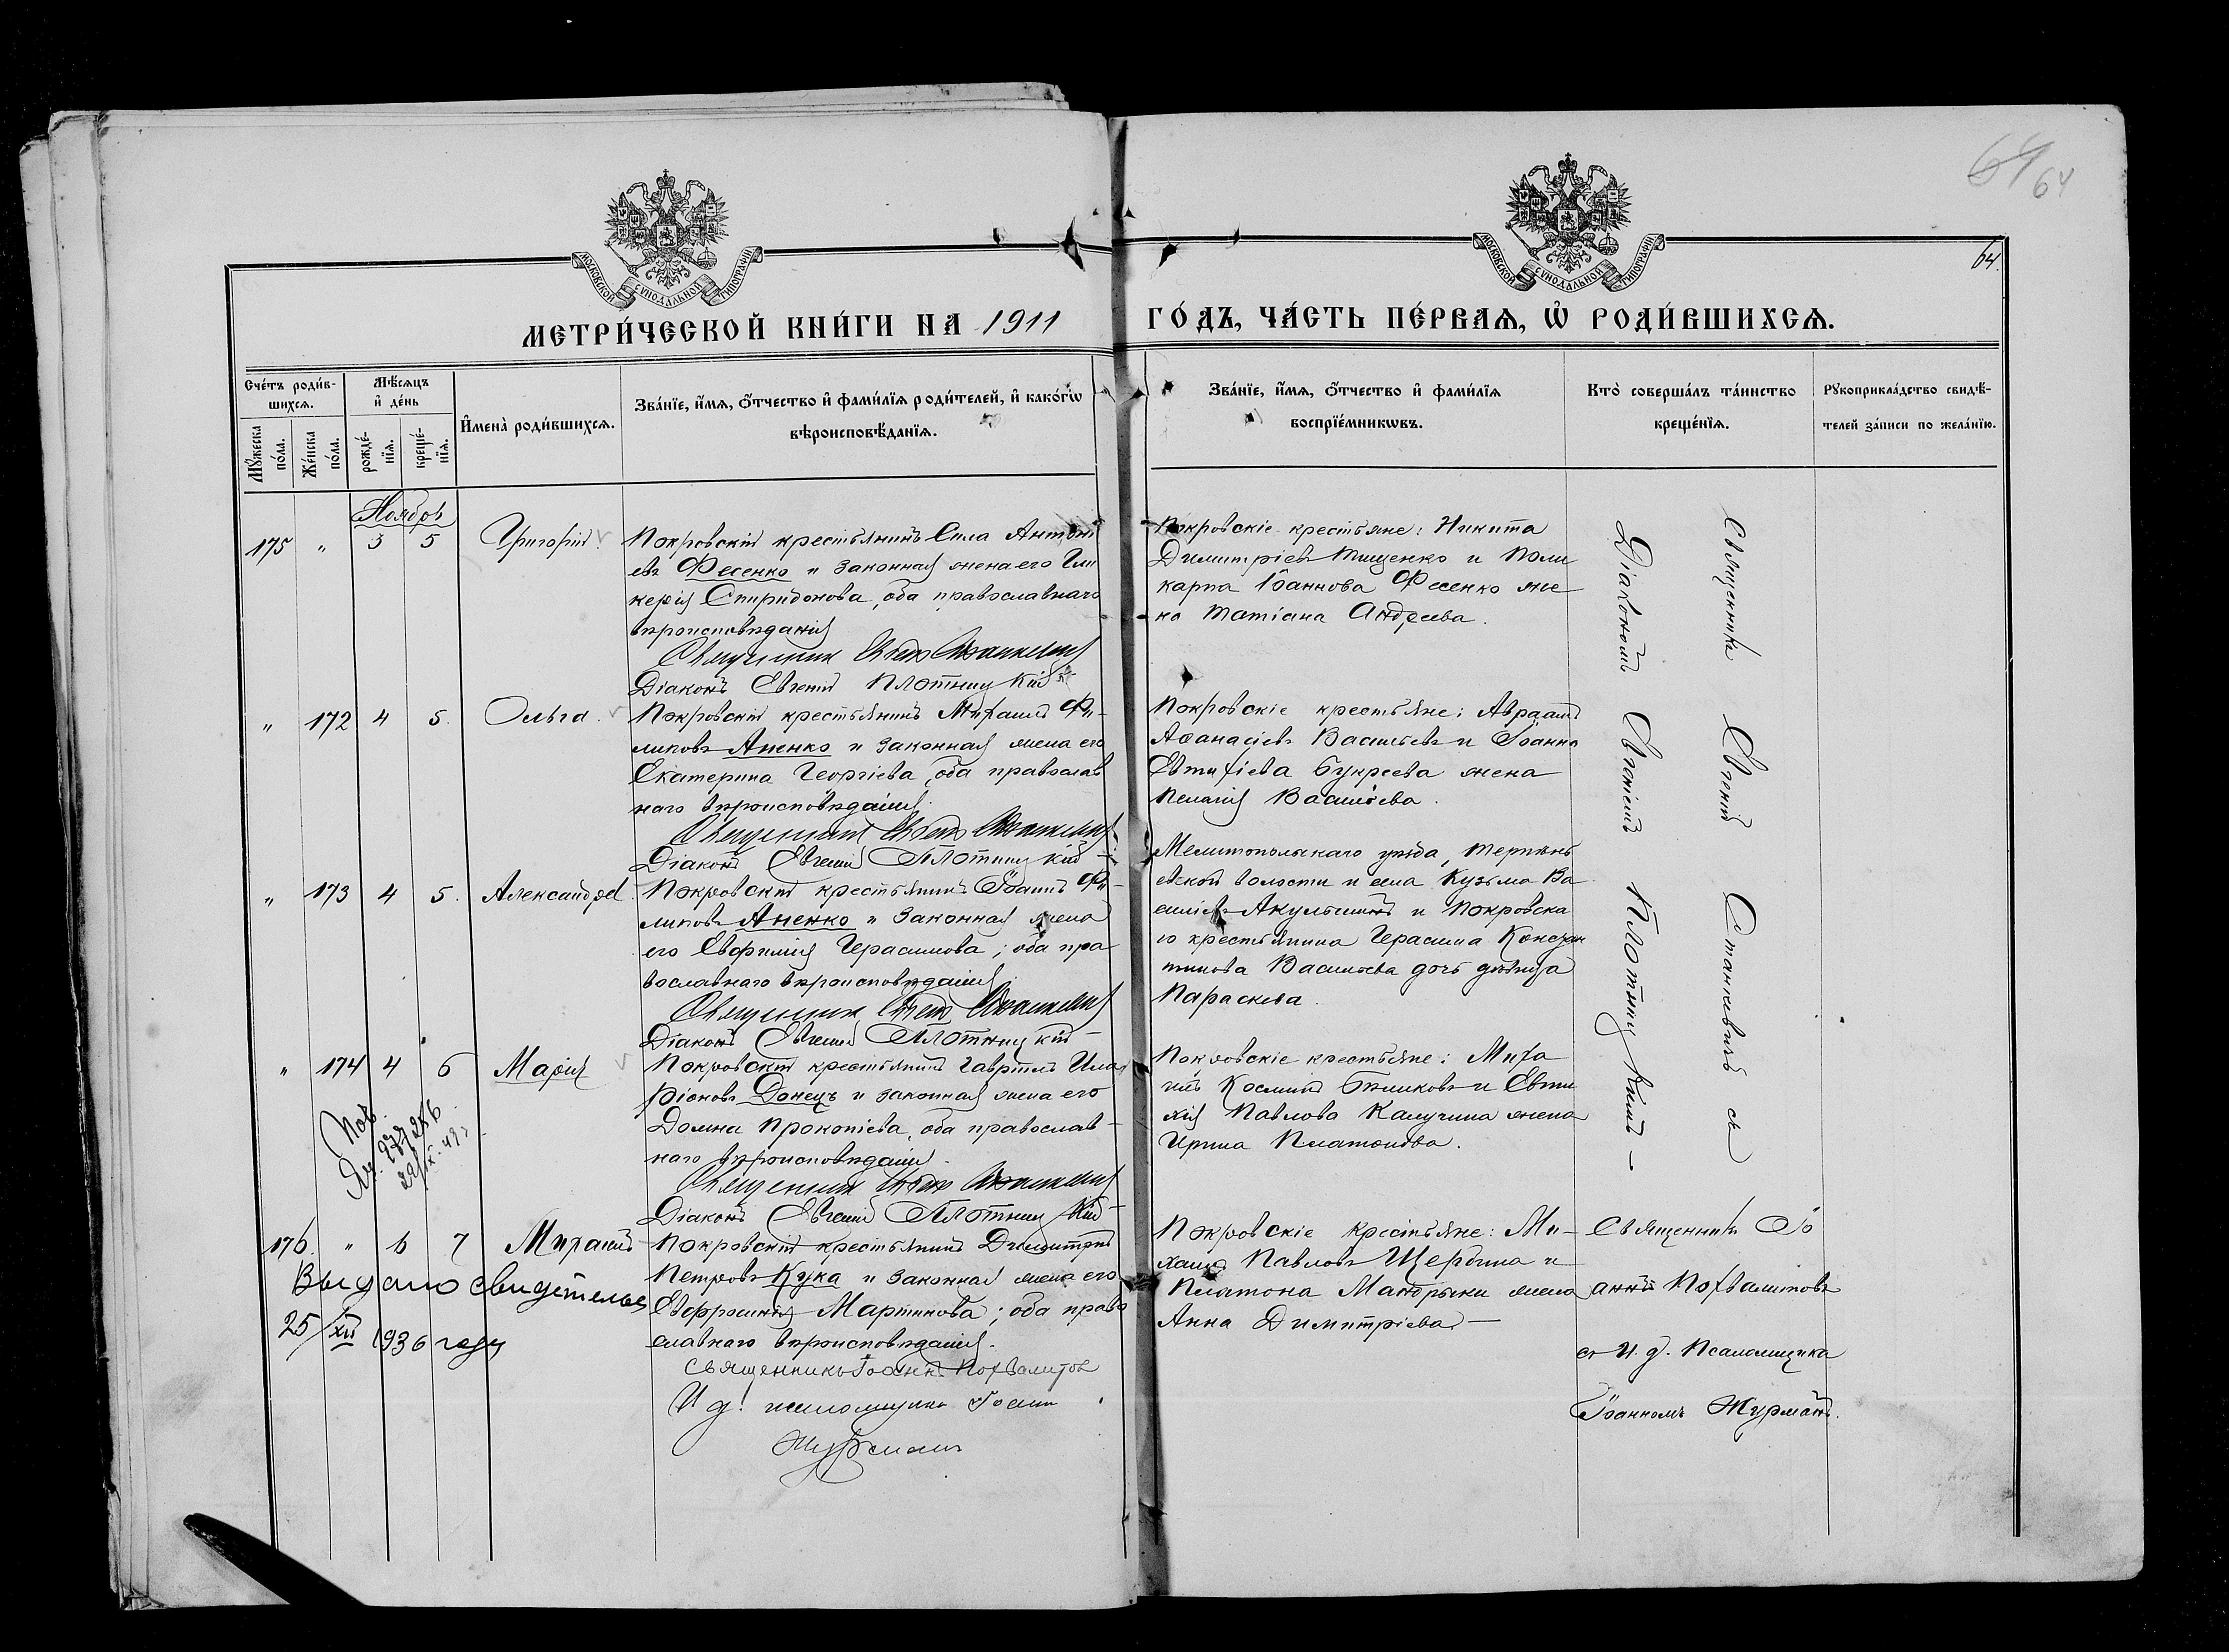 64 64
64.
МОСКОВСКОЙ СѴНОДАЛЬНОЙ ТИПОГРАФІИ
МОСКОВСКОЙ СѴНОДАЛЬНОЙ ТИПОГРАФІИ
МЕТРИ́ЧЕСКОЙ КНИ́ГИ НА 1911 ГО́ДЪ, ЧА́СТЬ ПЕ́РВАѦ, Ѡ҆ РОДИ́ВШИХСѦ.
Сче́тъ роди́в-
шихсѧ.
Мѣ́сѧцъ
и҆ де́нь
Мꙋ́жеска по́ла.
Же́нска по́ла.
рожде́-
нїѧ.
креще́-
нїѧ.
И҆мена̀ роди́вшихсѧ.
Зва́нїе, и҆́мѧ, ѻ҆́тчество и҆ фами́лїѧ роди́телей, и҆ како́гѡ
вѣроисповѣ́данїѧ.
Зва́нїе, и҆́мѧ, ѻ҆́тчество и҆ фами́лїѧ
воспрїе́мникѡвъ.
Кто̀ соверша́лъ та́инство
креще́нїѧ.
Рꙋкоприкла́дство свидѣ́-
телей за́писи по жела́нїю.
Ноябрь
175 " 3 5 Григорій
Покровскій крестьянинъ Сила Антоні
евъ Фесенко и законная жена его Гли
керія Спиридонова, оба православнаго
вѣроисповѣданія
Священникъ Евгеній Станкевичъ
Діаконъ Евгеній Плотницкій
Покровскіе крестьяне: Никита
Димитріевъ Тищенко и Поли
карпа Іоаннова Фесенко же
на Татіана Андреева.
" 172 4 5. Ольга.
Покровскій крестьянинъ Михаилъ Фи-
липовъ Аненко и законная жена его
Екатерина Георгіева, оба православ
наго вѣроисповѣданія.
Священникъ Евгеній Станкевичъ
Діаконъ Евгеній Плотницкій
Покровскіе крестьяне: Авраамъ
Аѳанасіевъ Васильевъ и Іоанна
Евтихіева Букреева жена
Пелагія Васильева.
" 173 4 5. Александра
Покровскій крестьянинъ Іоаннъ Фи-
липовъ Аненко и законная жена
его Евфимія Герасимова; оба пра
вославнаго вѣроисповѣданія
Священникъ Евгеній Станкевичъ
Діаконъ Евгеній Плотницкій
Мелитопольскаго уѣзда, Терпѣнь
евской волости и села Кузьма Ва
силіевъ Акульшинъ и Покровска
го крестьянина Герасима Констан
тинова Васильева дочь дѣвица
Параскева.
" 174 4 6 Марія
Покровскій крестьянинъ Гавріилъ Ила
ріоновъ Донецъ и законная жена его
Домна Прокопіева, оба православ-
наго вѣроисповѣданія.
Священникъ Евгеній Станкевичъ
Діаконъ Евгеній Плотницкій
Покровскіе крестьяне: Миха
илъ Косминъ Бѣликовъ и Евти
хія Павлова Калугина жена
Ирина Платонова.
Священникъ Евгеній Станкевичъ съ
Діакономъ Евгеніемъ Плотницкимъ –
176. " 6 7 Михаилъ
Покровскій крестьянинъ Димитрій
Петровъ Кука и законная жена его
Евфросинія Мартинова; оба право
славнаго вѣроисповѣданія.
Священникъ Іоаннъ Похвалитовъ
И. д. псаломщика Іоаннъ
Журманъ
Покровскіе крестьяне: Ми-
хаилъ Павловъ Щербина и
Платона Мандрыки жена
Анна Димитріева. —
Священникъ Іо
аннъ Похвалитовъ
съ И. д. Псаломщика
Іоанномъ Журманъ.
Выдано свидетельс
25/XII 1936 году